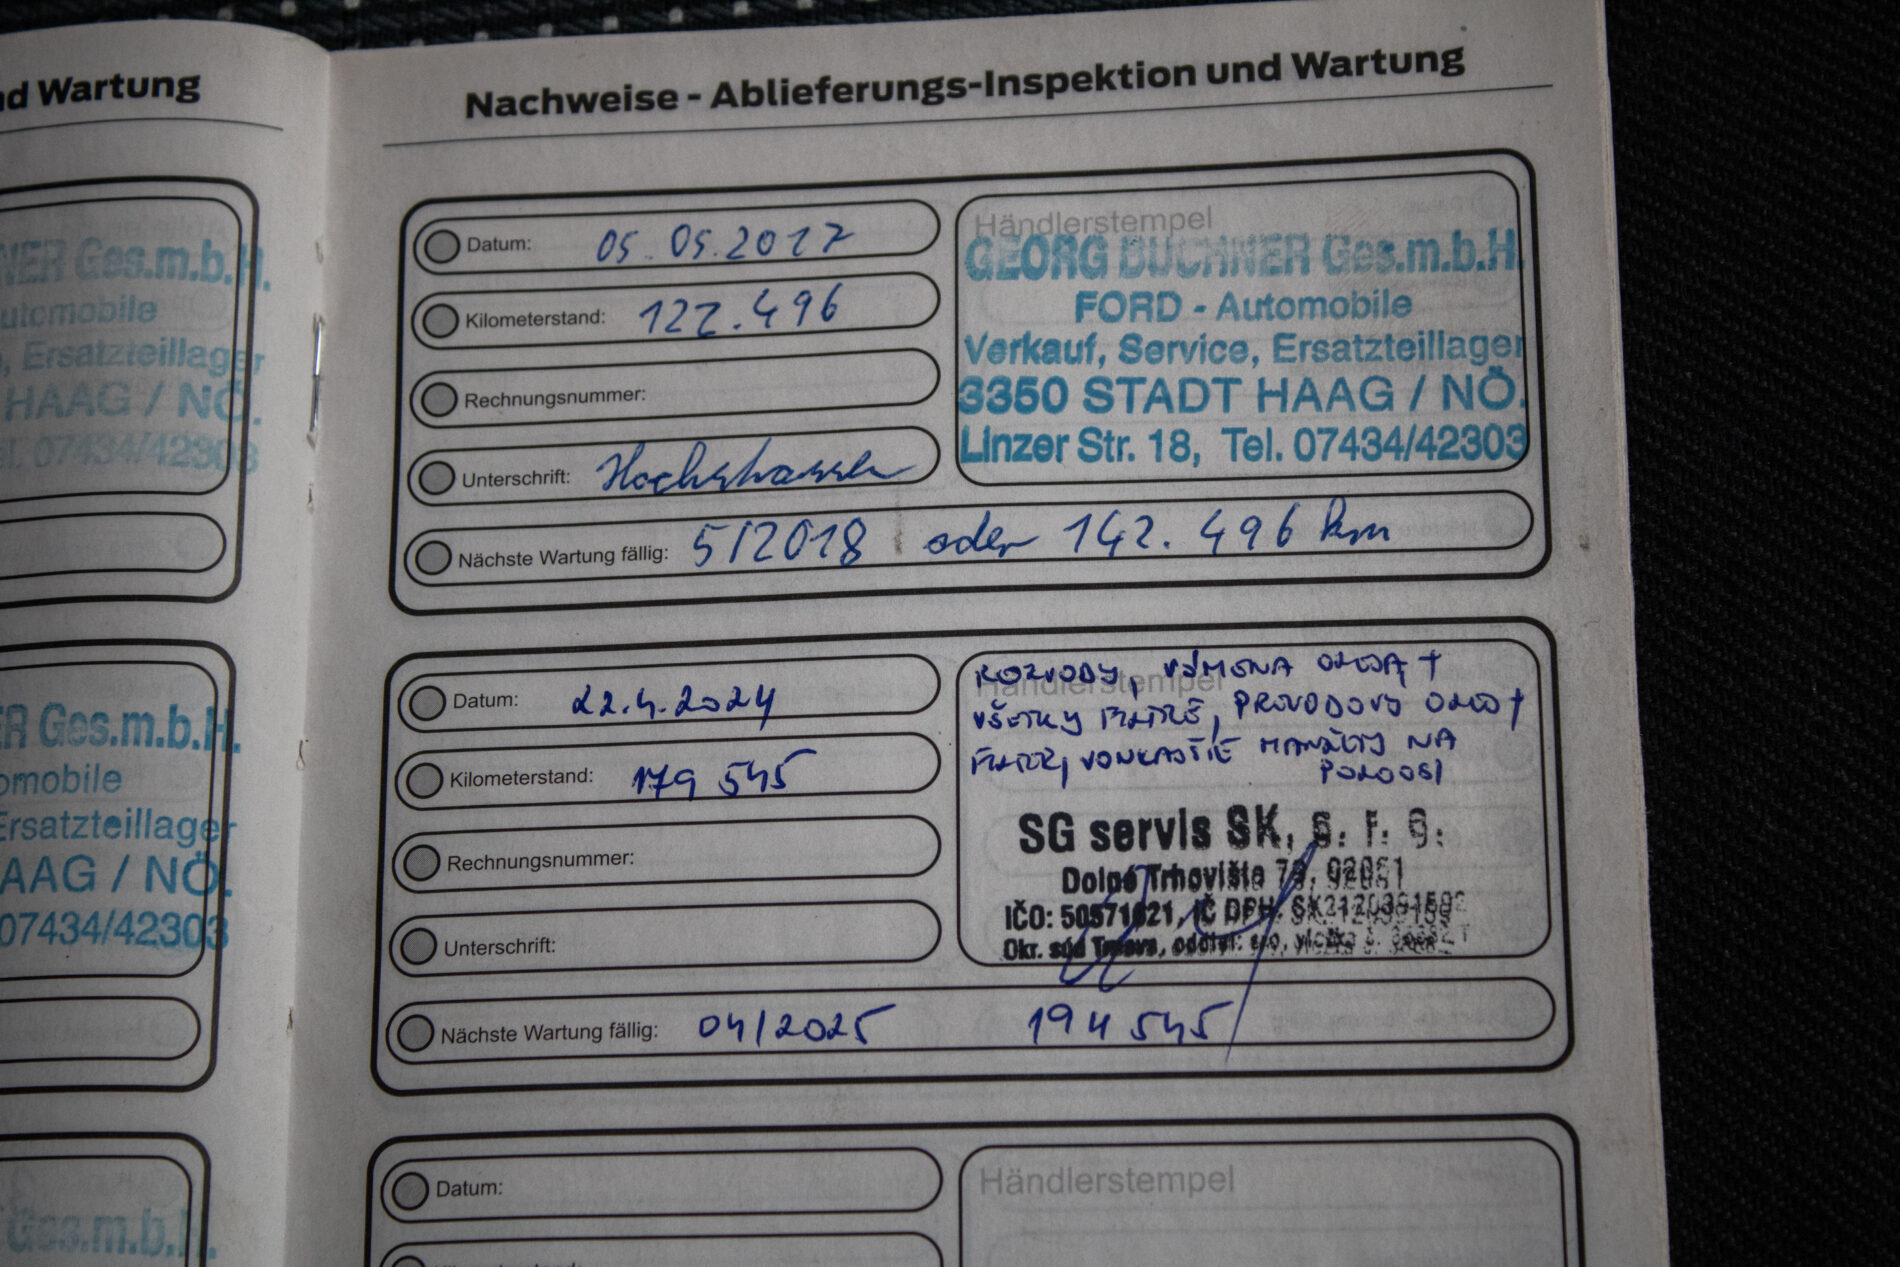 nd Wartung
NER Ges.m.b.H.
utomobile
, Ersatzteillager
HAAG / NÖ.
el. 07434/42303
ER Ges.m.b.H.
omobile
Ersatzteillager
AAG / NÖ.
07434/42303
Ges.m.b.H.
Nachweise - Ablieferungs-Inspektion und Wartung
Datum: 05.05.2017
Kilometerstand: 122.496
Rechnungsnummer:
Unterschrift:
Nächste Wartung fällig: 5/2018 oder 142.496 km
Händlerstempel
GEORG BUCHNER Ges.m.b.H.
FORD - Automobile
Verkauf, Service, Ersatzteillager
3350 STADT HAAG / NÖ.
Linzer Str. 18, Tel. 07434/42303
Datum: 22.4.2024
Kilometerstand: 179 545
Rechnungsnummer:
Unterschrift:
Nächste Wartung fällig: 04/2025 194 545
Händlerstempel
ROZVODY, VÝMENA OLEJA +
VŠETKY FILTRE, PREVODOVÝ OLEJ +
FILTER, VONKAJŠIE MANŽETY NA
POLOOSI
SG servis SK, s. r. o.
Dolné Trhovište 79, 92061
IČO: 50571621, IČ DPH:
Okr. súd Trnava, oddiel: sro, vložka č.
Datum:
Händlerstempel
Kilometerstand: